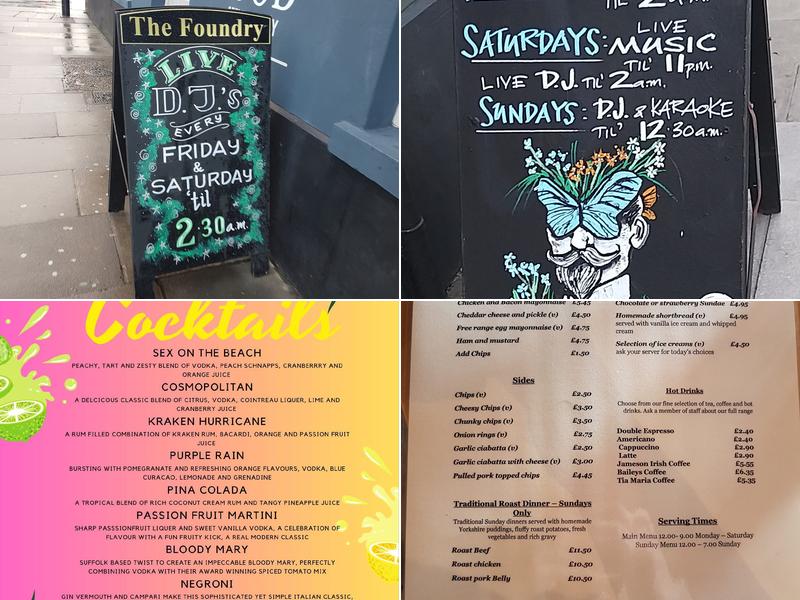 The Foundry
LIVE
D.J.'s
EVERY
FRIDAY
&
SATURDAY
'til
2.30a.m.
SATURDAYS: LIVE
MUSIC
TIL' 11p.m.
LIVE D.J. TIL' 2a.m.
SUNDAYS: D.J. & KARAOKE
TIL' 12.30a.m.
Cocktails
SEX ON THE BEACH
PEACHY, TART AND ZESTY BLEND OF VODKA, PEACH SCHNAPPS, CRANBERRRY AND
ORANGE JUICE
COSMOPOLITAN
A DELCICOUS CLASSIC BLEND OF CITRUS, VODKA, COINTREAU LIQUER, LIME AND
CRANBERRY JUICE
KRAKEN HURRICANE
A RUM FILLED COMBINATION OF KRAKEN RUM, BACARDI, ORANGE AND PASSION FRUIT
JUICE
PURPLE RAIN
BURSTING WITH POMEGRANATE AND REFRESHING ORANGE FLAVOURS, VODKA, BLUE
CURACAO, LEMONADE AND GRENADINE
PINA COLADA
A TROPICAL BLEND OF RICH COCONUT CREAM RUM AND TANGY PINEAPPLE JUICE
PASSION FRUIT MARTINI
SHARP PASSSIONFRUIT LIQUER AND SWEET VANILLA VODKA, A CELEBRATION OF
FLAVOUR WITH A FUN FRUITY KICK, A REAL MODERN CLASSIC
BLOODY MARY
SUFFOLK BASED TWIST TO CREATE AN IMPECCABLE BLOODY MARY, PERFECTLY
COMBINIING VODKA WITH THEIR AWARD WINNING SPICED TOMATO MIX
NEGRONI
GIN VERMOUTH AND CAMPARI MAKE THIS SOPHISTICATED YET SIMPLE ITALIAN CLASSIC,
Chicken and Bacon mayonnaise £5.45
Cheddar cheese and pickle (v) £4.50
Free range egg mayonnaise (v) £4.75
Ham and mustard £4.75
Add Chips £1.50
Sides
Chips (v) £2.50
Cheesy Chips (v) £3.50
Chunky chips (v) £3.50
Onion rings (v) £2.75
Garlic ciabatta (v) £2.50
Garlic ciabatta with cheese (v) £3.00
Pulled pork topped chips £4.45
Traditional Roast Dinner – Sundays
Only
Traditional Sunday dinners served with homemade
Yorkshire puddings, fluffy roast potatoes, fresh
vegetables and rich gravy
Roast Beef £11.50
Roast chicken £10.50
Roast pork Belly £10.50
Chocolate or strawberry Sundae £4.95
Homemade shortbread (v) £4.95
served with vanilla ice cream and whipped
cream
Selection of ice creams (v) £4.50
ask your server for today's choices
Hot Drinks
Choose from our fine selection of tea, coffee and hot
drinks. Ask a member of staff about our full range
Double Espresso £2.40
Americano £2.40
Cappuccino £2.90
Latte £2.90
Jameson Irish Coffee £5.55
Baileys Coffee £6.35
Tia Maria Coffee £5.35
Serving Times
Main Menu 12.00- 9.00 Monday – Saturday
Sunday Menu 12.00 – 7.00 Sunday